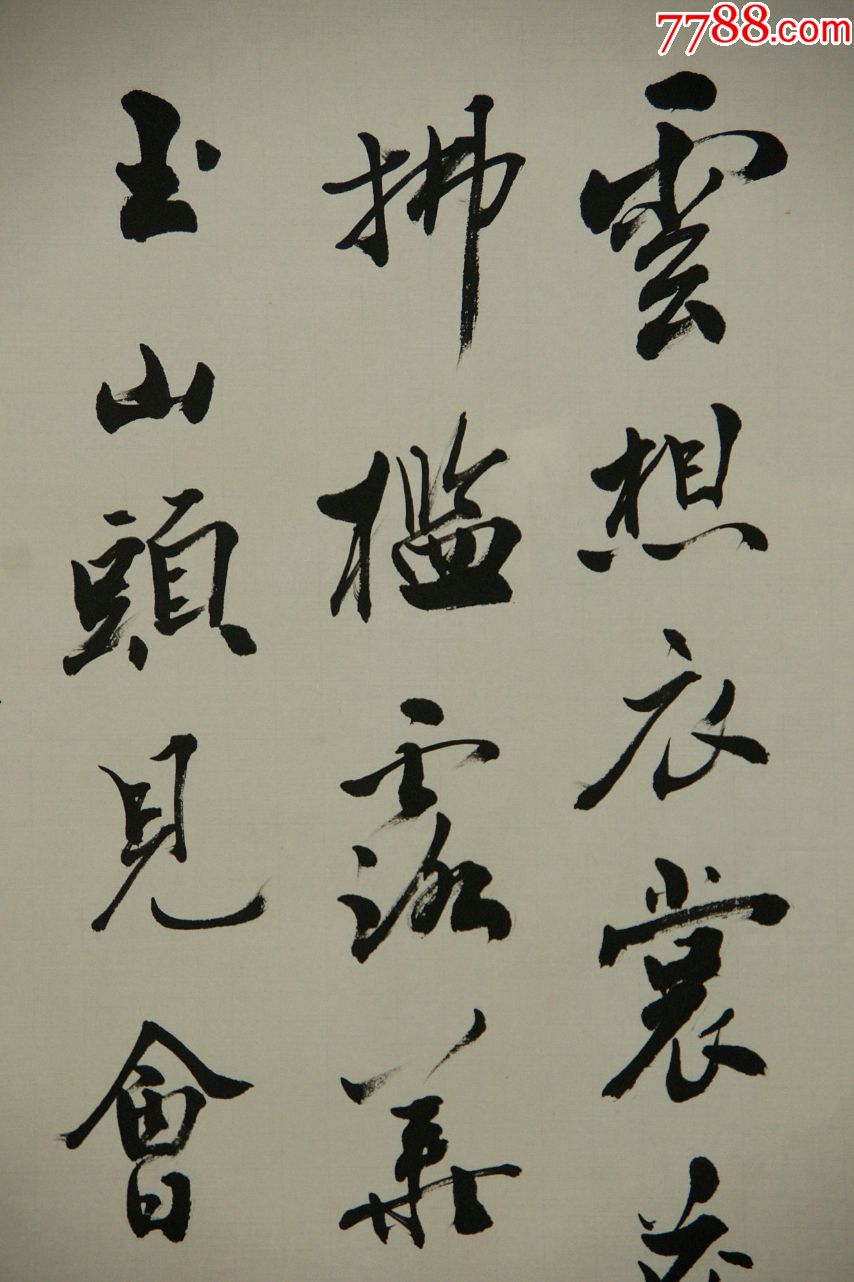 7788.com
雲想衣裳花
拂檻露華
玉山頭見會